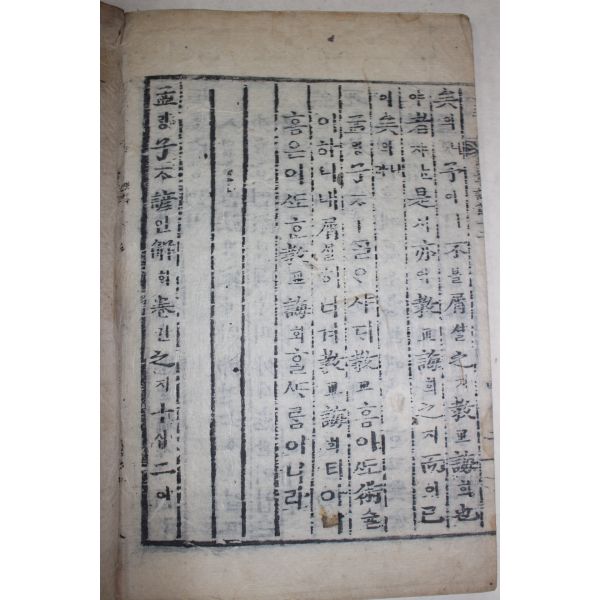 矣의니予여ㅣ不블屑셜之지教교誨회也
야者쟈ᄂᆞᆫ是시亦역教교誨회之지而이已
이矣의니라
孟ᄆᆡᆼ子ᄌᆞㅣᄀᆞᆯᄋᆞ샤ᄃᆡ教교홈이ᄯᅩ術슐
이하니내屑셜히녀겨教교誨회티아니
홈은이ᄯᅩᄒᆞᆫ教교誨회ᄒᆞᆯᄯᆞ룸이니라
孟ᄆᆡᆼ子ᄌᆞ諺언解ᄒᆡ卷권之지十십二이